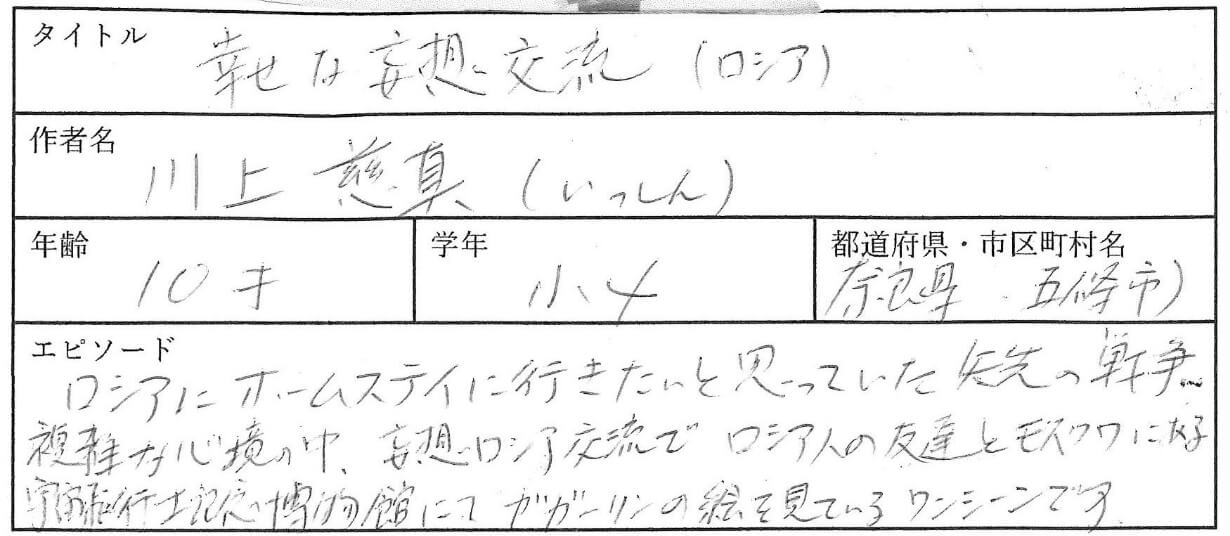 タイトル
幸せな妄想交流(ロシア)
作者名
川上 慈真(いっしん)
年齢
10才
学年
小4
都道府県・市区町村名
奈良県 五條市)
エピソード
ロシアにホームステイに行きたいと思っていた矢先の戦争…
複雑な心境の中、妄想ロシア交流でロシア人の友達とモスクワにある
宇宙飛行士記念博物館にてガガーリンの絵を見ているワンシーンです